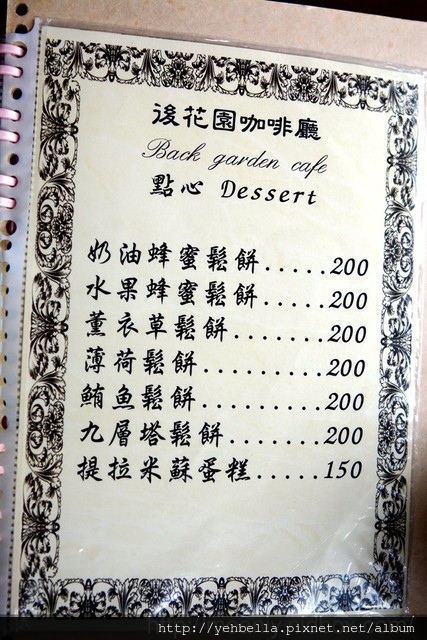 後花園咖啡廳
Back garden cafe
點心 Dessert
奶油蜂蜜鬆餅.....200
水果蜂蜜鬆餅.....200
薰衣草鬆餅.......200
薄荷鬆餅.........200
鮪魚鬆餅.........200
九層塔鬆餅.......200
提拉米蘇蛋糕.....150
http://yehbella.pixnet.net/album